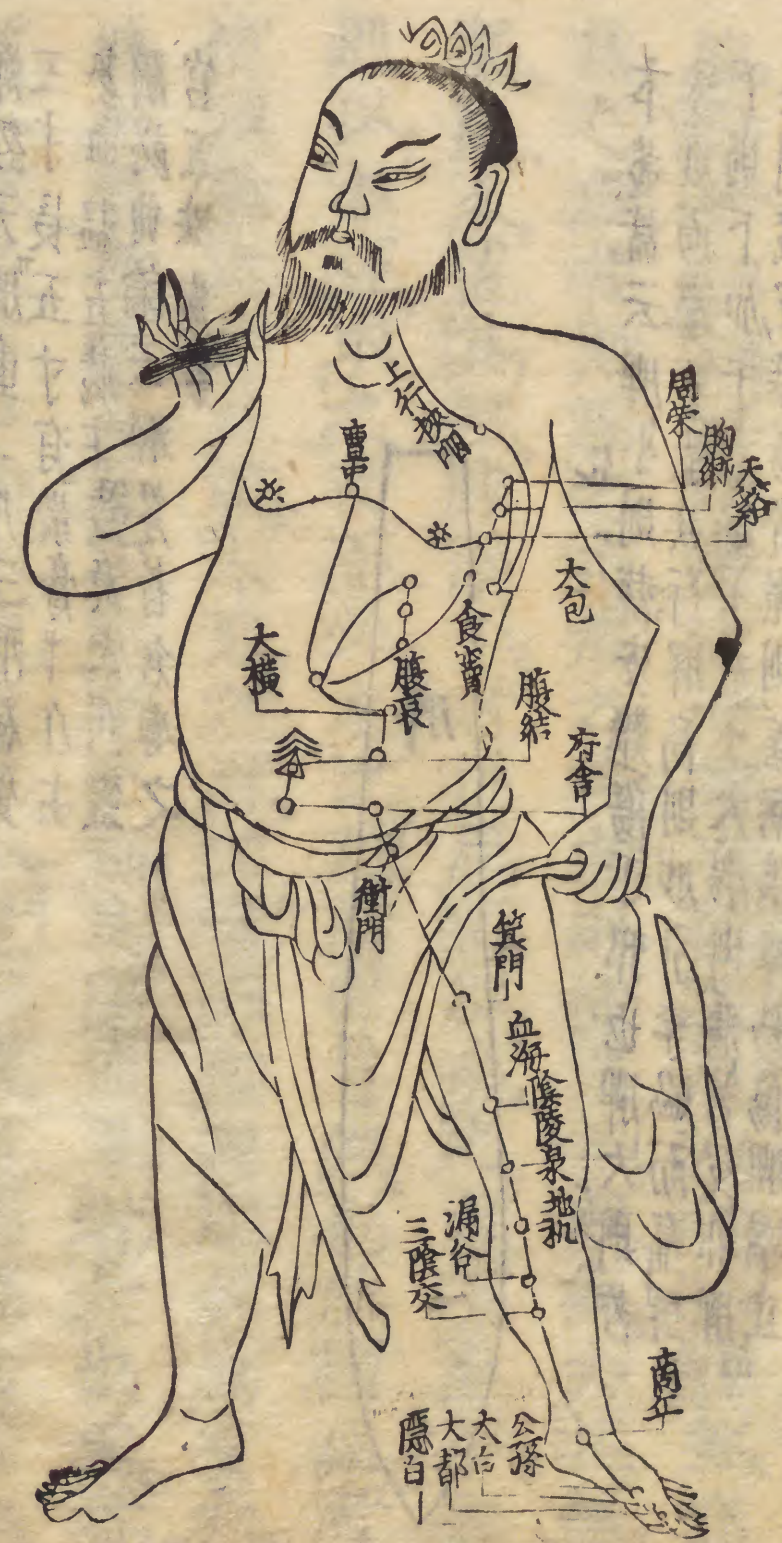 上行挾咽
周荣
胸鄉
天谿
亶中
大包
食竇
大橫
腹哀
腹結
府舍
衝門
箕門
血海
陰陵泉
地机
漏谷
三陰交
商丘
公孫
太白
大都
隠白